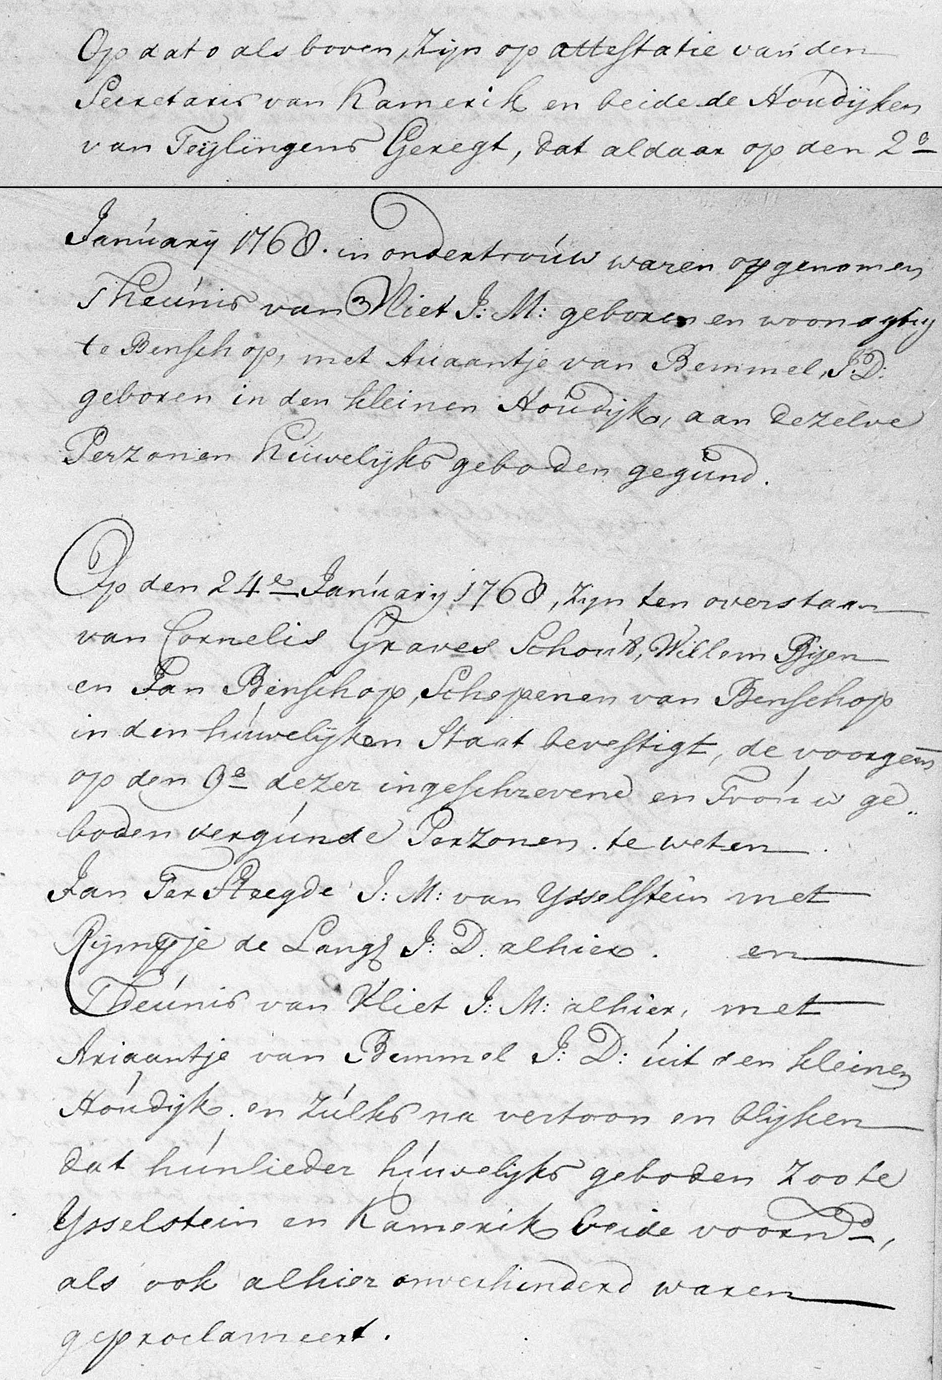 Op dato als boven, zijn op attestatie van den
Secretaris van Kamerik en beide de Houdijken
van Teijlingens Geregt, dat aldaar op den 2e
Januarij 1768. in ondertrouw waren opgenomen
Theunis van Vliet J: M: geboren en woonagtig
te Benschop, met Ariaantje van Bemmel, J:D:
geboren in den kleinen Houdijk, aan dezelve
Perzonen Huwelijks geboden gegund.
Op den 24e Januarij 1768, zijn ten overstaan
van Cornelis Graves Schout, Willem Bijen
en Jan Benschop, Schepenen van Benschop
in den huwelijken Staat bevestigt, de voorgem
op den 9e dezer ingeschrevene en Trouw ge„
boden vergunde Perzonen te weten
Jan Ter Steegde J: M: van Ysselstein met
Rijmpje de Lange J: D. alhier. en
Theunis van Vliet J: M: alhier, met
Ariaantje van Bemmel J: D: uit den kleinen
Houdijk. en zulks na vertoon en blijken
dat hunlieder huwelijks geboden zoo te
Ysselstein en Kamerik beide voornd,
als ook alhier onverhinderd waren
geproclameert.